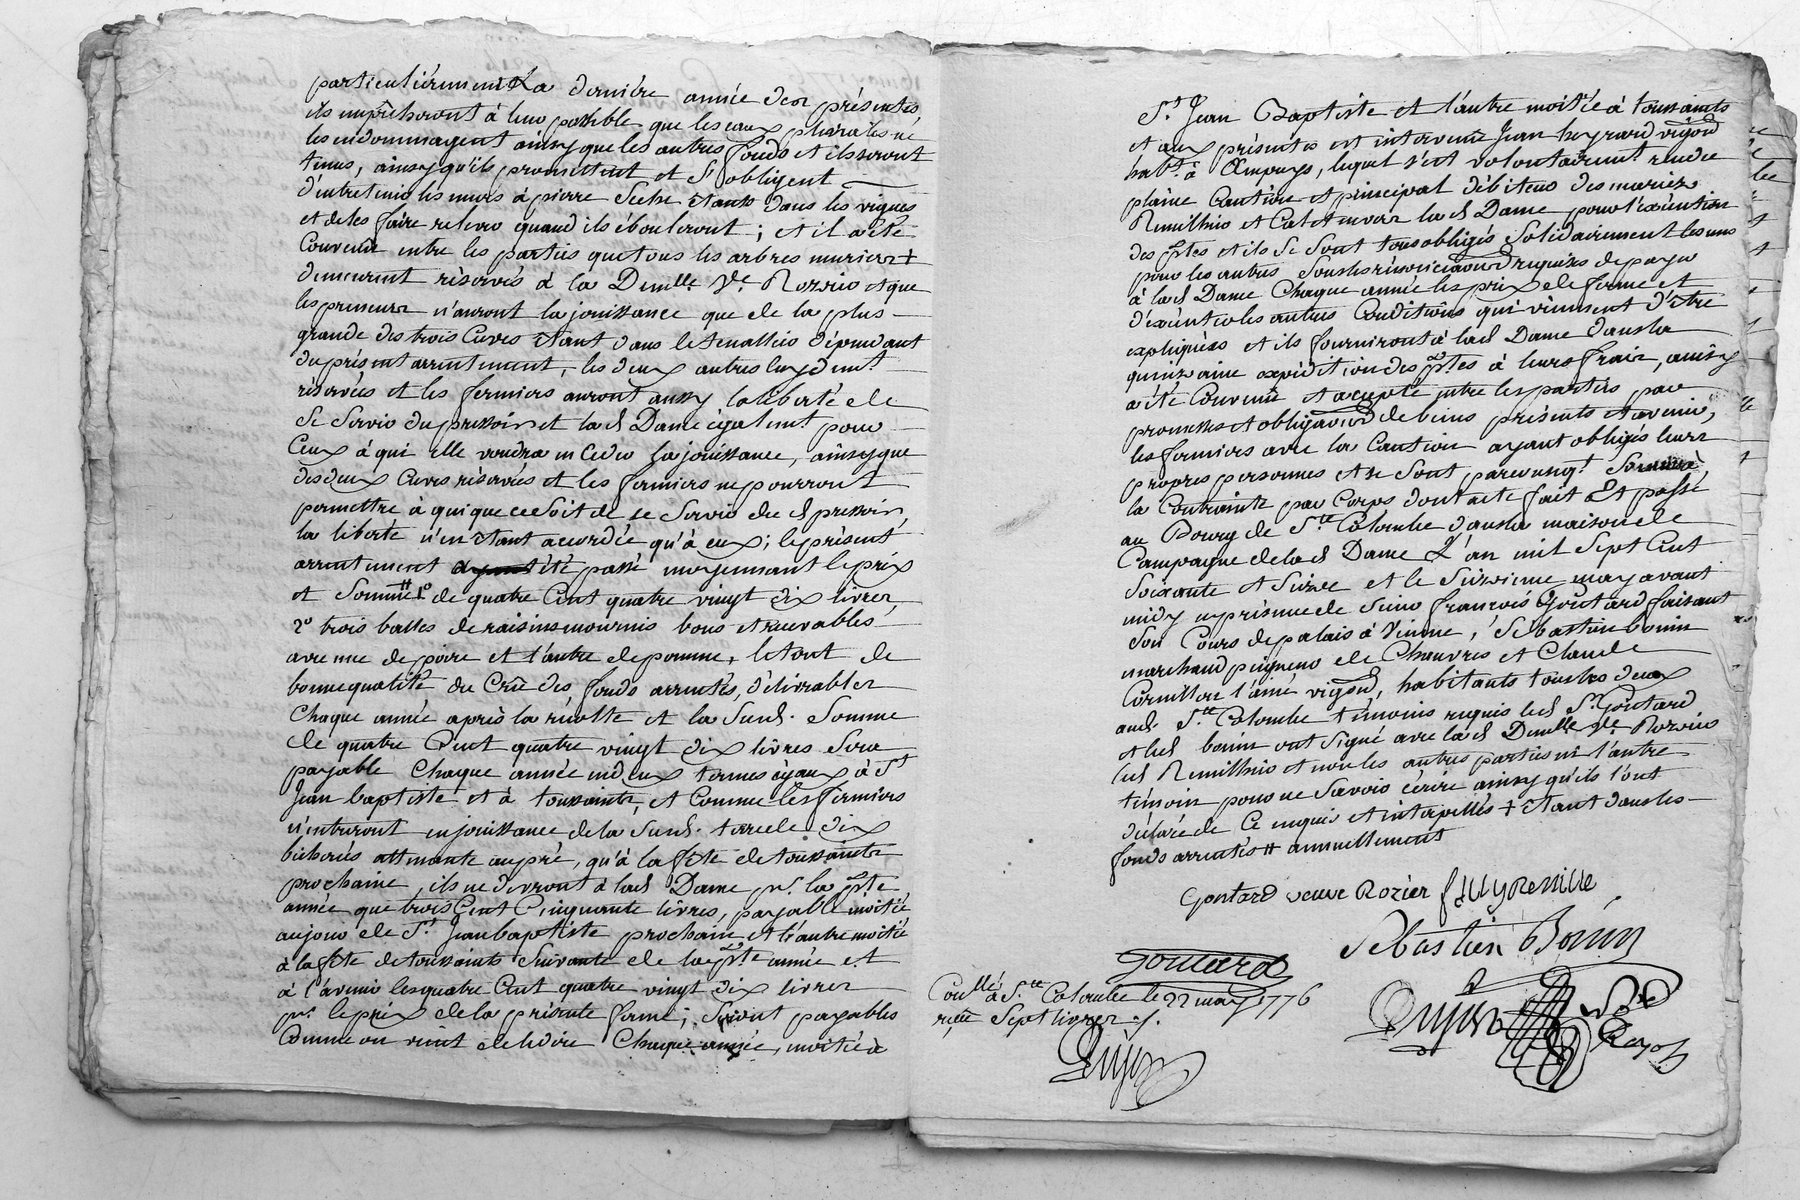 particulièrement la dernière année des présentes
ils empêcheront à leur possible que les eaux pluviales ne
les endommagent ainsy que les autres fonds et ils seront
tenus, ainsy qu'ils promettent et s'obligent
d'entretenir les murs à pierre Seche étants dans les vignes
et de les faire relever quand ils ébouleront ; et il a été
Convenu entre les parties que tous les arbres muriers +
demeurent réservés à la Demlle Ve Rozier et que
les preneurs n'auront la jouissance que de la plus
grande des trois Cuves étant dans le tenallier dépendant
du présent arrentement, les deux autres luy demt
réservées et les fermiers auront aussy la liberté de
Se Servir du pressoir et lad Dame égalemt pour
Ceux à qui elle voudra en Ceder la jouissance, ainsy que
des deux Cuves réservées et les fermiers ne pourront
permettre à qui que ce Soit de se Servir du d pressoir
la liberté n'en étant accordée qu'à eux ; le présent
arrentement été passé moyennant le prix
et Somme # 1° de quatre Cent quatre vingt dix livres
2° trois balles de raisins mournis bons et recevables
avec une de poire et l'autre de pomme, le tout de
bonne qualité du Crû des fonds arrentés, délivrables
Chaque année après la récolte et la Susd. Somme
de quatre Cent quatre vingt dix livres Sera
payable Chaque année en deux termes égaux à St
Jean baptiste et à toussaints, et Comme les fermiers
n'entreront en jouissance de la Susd. terre de dix
bicherées attenante au pré, qu'à la fête de toussaints
prochaine, ils ne devront à lad Dame pr. la pnte
année que trois Cent Cinquante livres, payable moitié
au jour de St Jean baptiste prochain et l'autre moitié
à la fête de toussaints Suivante de la pnte année et
à l'avenir les quatre Cent quatre vingt dix livres
pr. le prix de la présente ferme ; Seront payables
Comme on vient de le dire Chaque année, moitié à
St Jean Baptiste et l'autre moitié à toussaints
et aux présentes est intervenu Jean heyraud vigon
habt. à Ampuys, lequel s'est volontairemt rendu
pleine Caution et principal débiteur des mariez
Remillier et Catet envers lad Dame pour l'exécution
des pntes et ils se Sont tous obligés Solidairement les uns
pour les autres Sous les renonciaons requises de payer
à lad Dame Chaque année les prix de ferme et
d'exécuter les autres Conditions qui viennent d'être
expliquées et ils fourniront à lad Dame dans la
quinzaine expédition des pntes à leurs frais, ainsy
a été Convenu et accepté entre les parties par
promesses et obligaons de biens présents et avenir,
les fermiers avec la Caution ayant obligés leurs
propres personnes et se Sont par exprès Soumis à
la Contrainte par Corps dont acte fait Et passé
au Bourg de Ste Colombe dans la maison de
Campagne de lad Dame L'an mil Sept Cent
Soixante et Seize et le Seizieme may avant
midy en présence de Sieur françois Goutard faisant
Son Cours de palais à Vienne, Sébastien bonin
marchand peigneur de Chanvres et Claude
Cornillon l'ainé vigon, habitants tous les deux
aud. Ste Colombe témoins requis led Sr. Goutard
et led bonin ont Signé avec lad Demlle Ve Rozier
led Remillier et non les autres parties ni l'autre
témoin pour ne Savoir écrire ainsy qu'ils l'ont
déclaré de Ce enquis et interpellés + étant dans les
fonds arrentés # annuellement
Goutard veuve Rozier
Sebastien Bonin
Goutard
Conllé à Ste Colombe le 22 may 1776
reçu Sept livres ./.
Dujon
Dujon